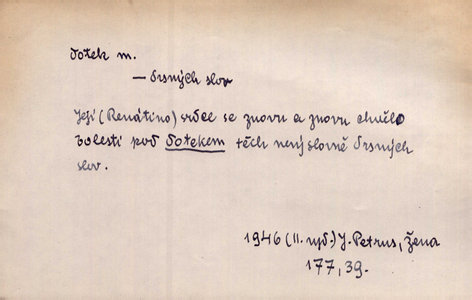 dotek m.
— drsných slov
Její (Renátino) srdce se znovu a znovu chvělo
bolestí pod dotekem těch nevýslovně drsných
slov.
1946 (II. vyd.) J. Petrus, Žena
177, 39.